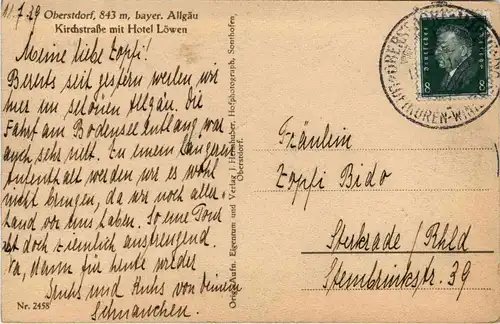 11.7.29
Oberstdorf, 843 m, bayer. Allgäu
Kirchstraße mit Hotel Löwen
Meine liebe Zopfi!
Bereits seit gestern weilen wir
hier im schönen Allgäu. Die
Fahrt am Bodensee entlang war
auch sehr nett. Zu einem längeren
Aufenthalt werden wir es wohl
nicht bringen, da wir noch aller-
hand vor uns haben. So eine Tour
ist doch ziemlich anstrengend.
Na, dann für heute wieder
Gruß und Kuss von Deinem
Schnauchen.
Nr. 2458
Orig. Aufn. Eigentum und Verlag J. Heimhuber, Hofphotograph, Sonthofen,
Oberstdorf.
Deutsches
8 8
Fräulein
Zopfi Bido
Sterkrade / Rhld
Steinbrinkstr. 39